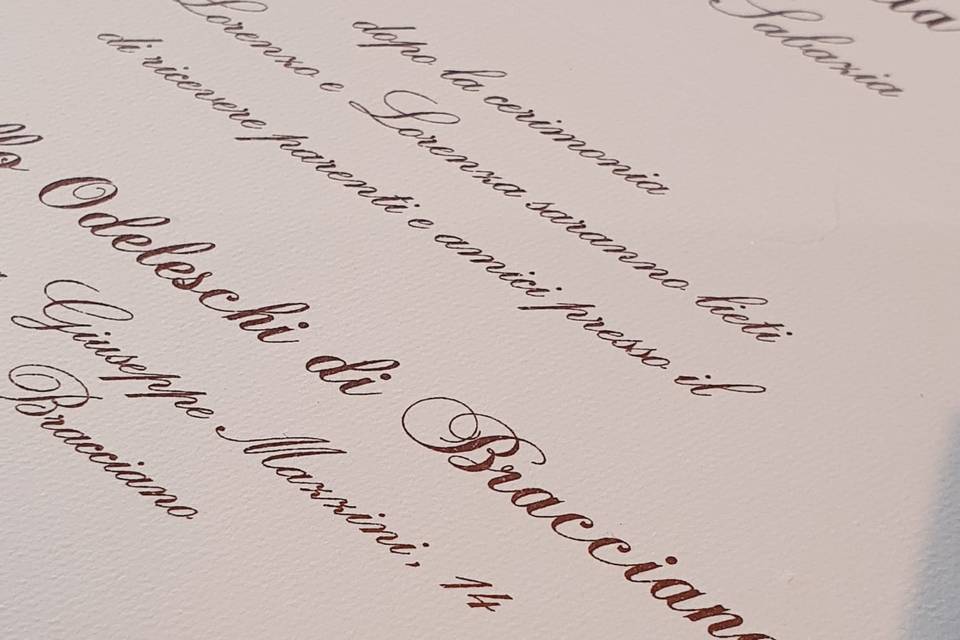 Sabazia
dopo la cerimonia
Lorenzo e Lorenza saranno lieti
di ricevere parenti e amici presso il
Odeleschi di Bracciano
Giuseppe Mazzini, 14
Bracciano